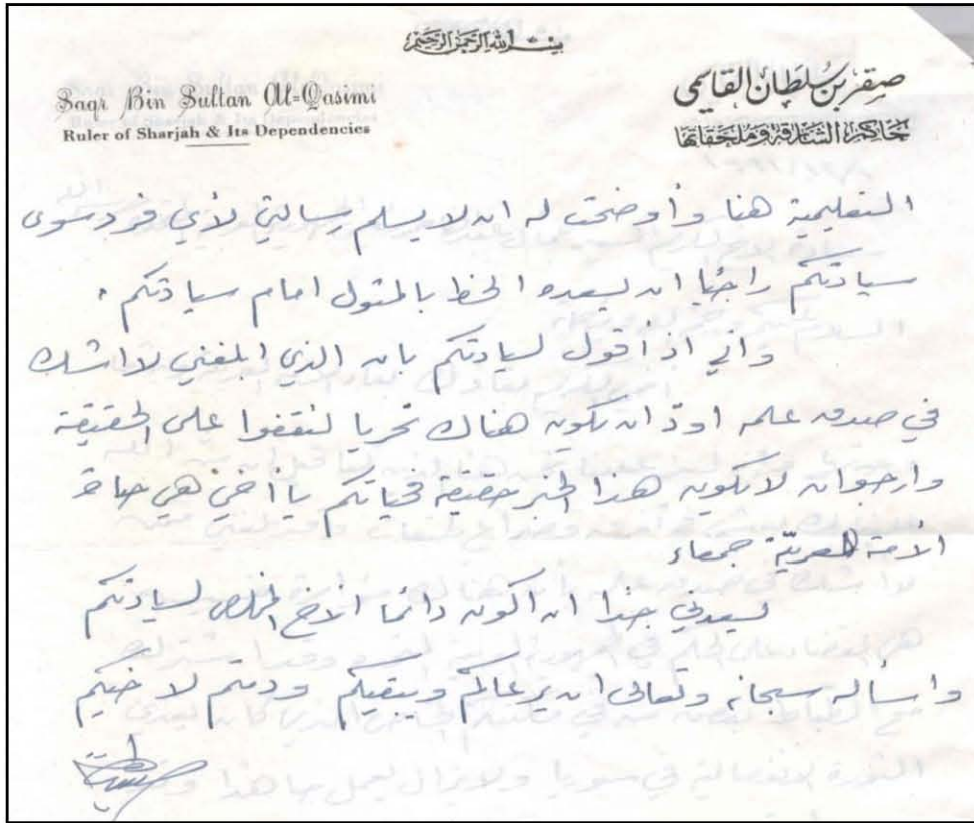 بسم الله الرحمن الرحيم
Saqr Bin Sultan Al=Qasimi
Ruler of Sharjah & Its Dependencies
صقر بن سلطان القاسمي
حاكم الشارقة وملحقاتها
التعليمية هنا وأوضحت له ان لا يسلم رسالتي لأي فرد سوى
سيادتكم راجيا ان يسعده الحظ بالمثول امام سيادتكم .
واني اذ أقول لسيادتكم بان الذي ابلغني لا اشك
في صدق علمه اودّ ان تكون هناك تحريا لتقفوا على الحقيقة
وارجو ان لا يكون هذا الخبر حقيقة فحياتكم يا أخي هي حياة
الأمة العربيّة جمعاء
يسعدني جدا ان اكون دائما الاخ المخلص لسيادتكم
واسأله سبحانه وتعالى ان يرعاكم ويبقيكم ودمتم لاخيكم